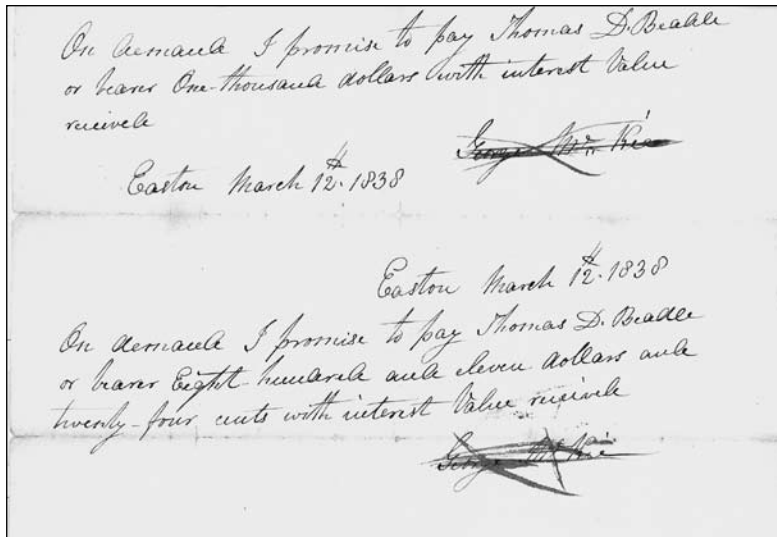 On demand I promise to pay Thomas D. Beadle
or bearer One-thousand dollars with interest Value
received
George Mc Kie
Easton March 12th. 1838
Easton March 12th. 1838
On demand I promise to pay Thomas D. Beadle
or bearer Eight-hundred and eleven dollars and
twenty-four cents with interest Value received
George Mc Kie